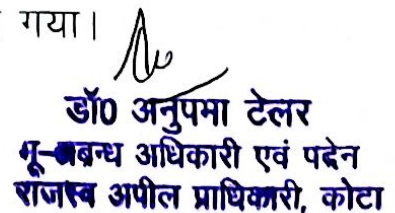 गया।
डॉ0 अनुपमा टेलर
भू-प्रबन्ध अधिकारी एवं पदेन
राजस्व अपील प्राधिकारी, कोटा